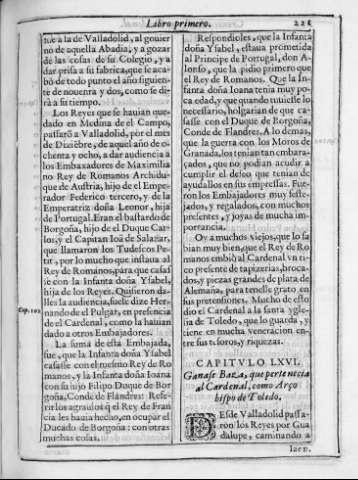 Libro primero. 221
fue a la de Valladolid, al gouier
no de aquella Abadia, y a gozar
de las cosas de su Colegio, y a
dar prisa a su fabrica, que se aca-
bò de todo punto el año siguien-
te de nouenta y dos, como se di-
rà a su tiempo.
Los Reyes que se hauian que-
dado en Medina de el Campo,
passarõ a Valladolid, por el mes
de Diziẽbre, de aquel año de o-
chenta y ocho, a dar audiencia a
los Embaxadores de Maximilia
no Rey de Romanos Archidu-
que de Austria, hijo de el Empe-
rador Federico tercero, y de la
Emperatriz doña Leonor, hija
de Portugal. Eran el bastardo de
Borgoña, hijo de el Duque Car-
los, y el Capitan Ioã de Salazar,
que llamaron los Tudescos Pe-
tit, por lo mucho que instaua al
Rey de Romanos, para que casas
se con la Infanta doña Ysabel,
hija de los Reyes. Quisieron da-
lles la audiencia, suele dize Her-
Cap. 102 nando de el Pulgar, en presencia
de el Cardenal, como la hauian
dado a otros Embaxadores.
La suma de esta Embajada,
fue, que la Infanta doña Ysabel
casasse con el mesmo Rey de Ro
manos, y la Infanta doña Ioana
con su hijo Filipo Duque de Bor
goña, Conde de Flandres: Refe-
rir los agrauios q̃ el Rey de Fran
cia les hauia hecho, en ocupar el
Ducado de Borgoña: con otras
muchas cosas.
Respondioles, que la Infanta
doña Ysabel, estaua prometida
al Principe de Portugal, don A-
lonso, que la pidio primero que
el Rey de Romanos. Que la In-
fanta doña Ioana tenia muy po-
ca edad, y que quando tuuiesse lo
necessario, holgarian de que ca-
sasse con el Duque de Borgoña,
Conde de Flandres. A lo demas,
que la guerra con los Moros de
Granada, los tenian tan embara-
çados, que no podian acudir a
cumplir el deseo que tenian de
ayudallos en sus empressas. Fue-
ron los Embajadores muy feste-
jados, y regalados, con muchos
presentes, y joyas de mucha im-
portancia.
Oy a muchos viejos, que lo sa
bian muy bien, que el Rey de Ro
manos embiò al Cardenal vn ri-
co presente de tapizerias, broca-
dos, y piezas grandes de plata de
Alemania, para tenelle grato en
sus pretensiones. Mucho de esto
dio el Cardenal a la santa ygle-
sia de Toledo, que lo guarda, y
tiene en mucha veneracion en-
tre sus tesoros, y riquezas.
CAPITVLO LXVI.
Ganase Baza, que pertenecia
al Cardenal, como Arço
bispo de Toledo.
DEsde Valladolid passa-
ron los Reyes por Gua
dalupe, caminando a
Iaen.